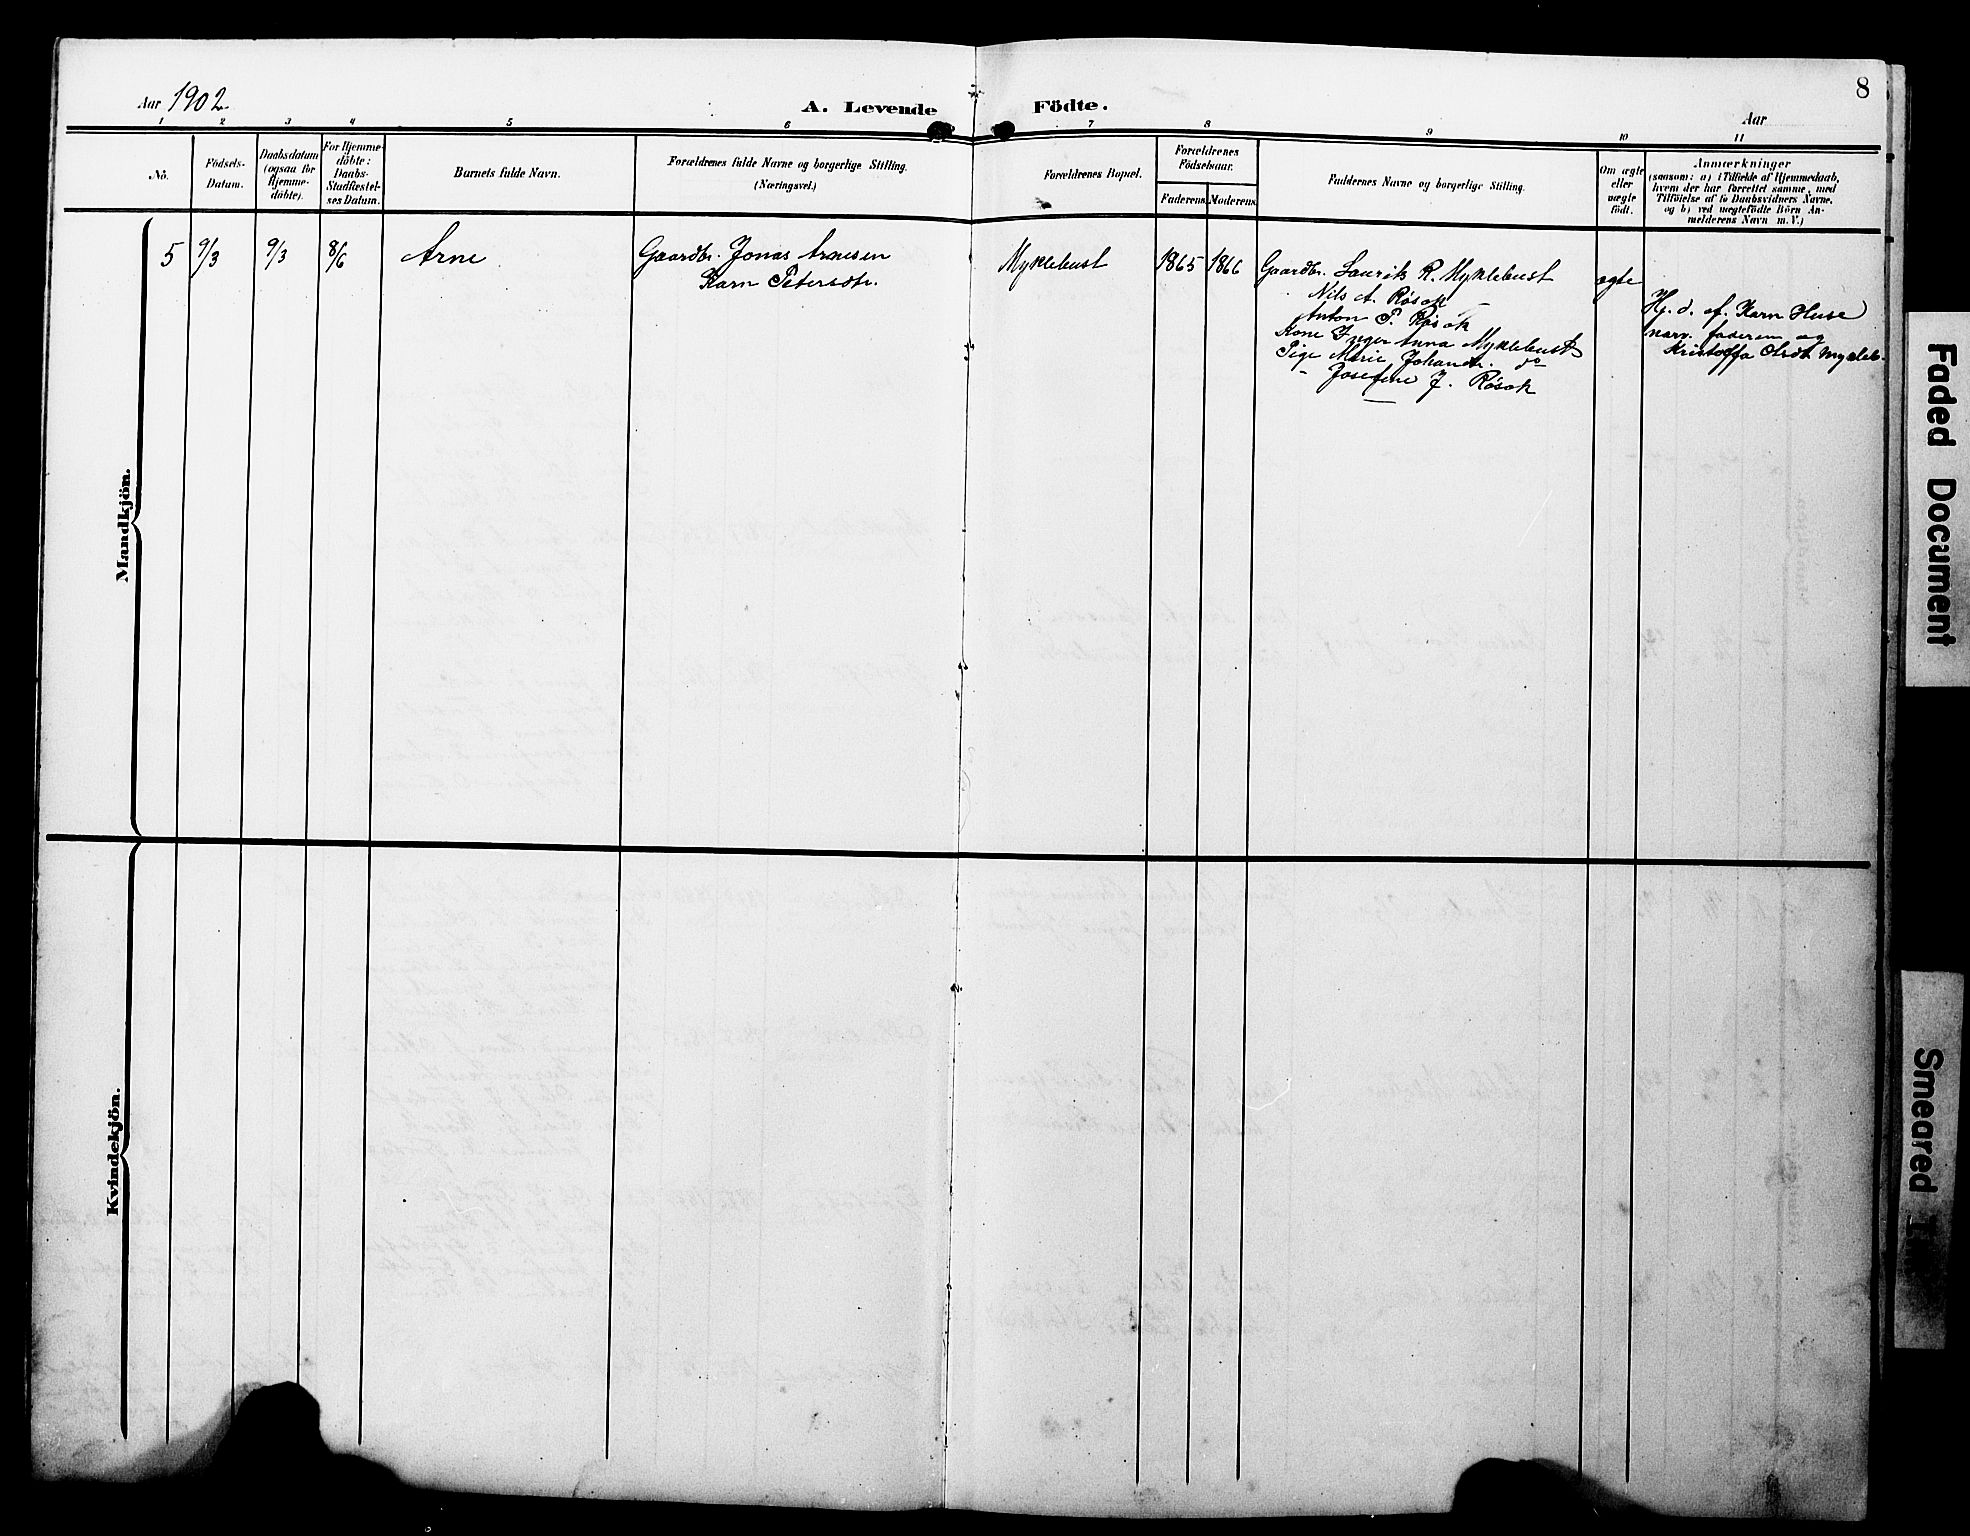 8
Aar 1902
A. Levende Födte.
Aar
1 2 3 4 5 6 7 8 9 10 11
No.
Födsels-
Datum.
Daabsdatum
(ogsaa for
Hjemme-
döbte).
For Hjemme-
döbte:
Daabs-
Stadfæstel-
ses Datum.
Barnets fulde Navn.
Forældrenes fulde Navne og borgerlige Stilling.
(Næringsvei.)
Forældrenes Bopæl.
Forældrenes
Födselsaar.
Faderens. Moderens.
Faddernes Navne og borgerlige Stilling.
Om ægte
eller
uægte
födt.
Anmærkninger
(saasom: a) i Tilfælde af Hjemmedaab,
hvem der har forrettet samme, med
Tilföielse af to Daabsvidners Navne,
og b) ved uægtefödte Börn An-
melderens Navn m. V.)
Mandkjön.
5 9/3 9/3 8/6 Arne
Gaardbr. Jonas Arnesen
Karn Petersdtr.
Myklebust
1865 1866
Gaardbr. Laurits R. Myklebust
Nils A. Røsok
Anton P. Røsok
Kone Inger Anna Myklebust
Pige Marie Johandtr. do
- Josefine J. Røsok
ægte
Hj. d. af Karn Huse
narv. faderen og
Kristoffa Olsdt. Mykleb.
Kvindekjön.
Faded Document
Smeared